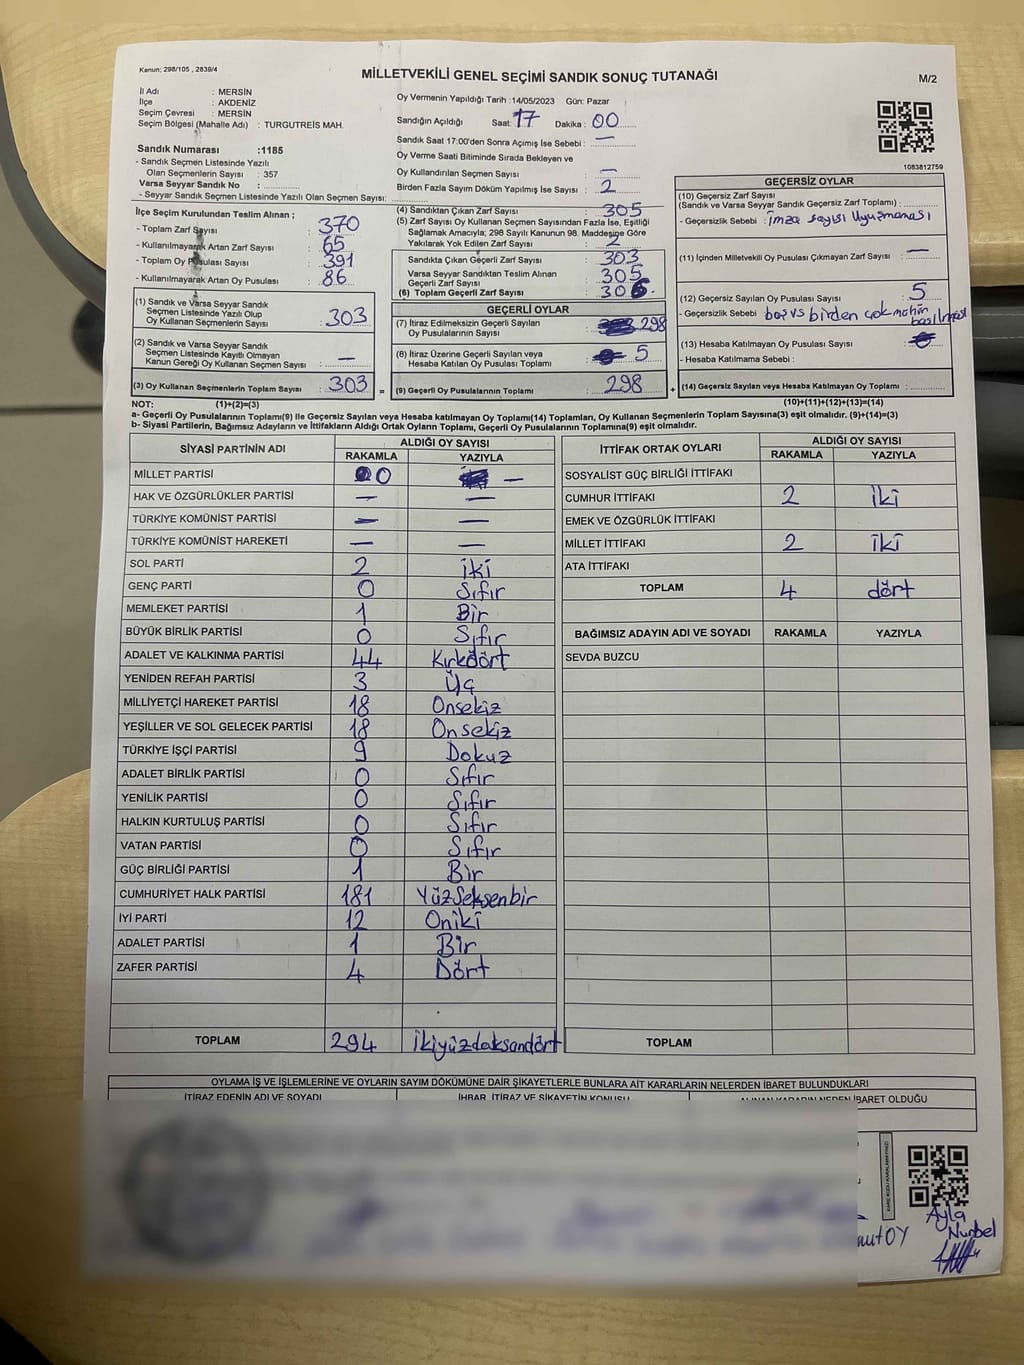 Kanun; 298/105 , 2839/4
MİLLETVEKİLİ GENEL SEÇİMİ SANDIK SONUÇ TUTANAĞI
M/2
İl Adı : MERSİN
İlçe : AKDENİZ
Seçim Çevresi : MERSİN
Seçim Bölgesi (Mahalle Adı) : TURGUTREİS MAH.
Sandık Numarası :1185
- Sandık Seçmen Listesinde Yazılı
Olan Seçmenlerin Sayısı : 357
Varsa Seyyar Sandık No :
- Seyyar Sandık Seçmen Listesinde Yazılı Olan Seçmen Sayısı:
Oy Vermenin Yapıldığı Tarih :14/05/2023 Gün: Pazar
Sandığın Açıldığı Saat: 17 Dakika : 00
Sandık Saat 17:00'den Sonra Açımış İse Sebebi : —
Oy Verme Saati Bitiminde Sırada Bekleyen ve
Oy Kullandırılan Seçmen Sayısı : —
Birden Fazla Sayım Döküm Yapılmış İse Sayısı : 2
1083812759
İlçe Seçim Kurulundan Teslim Alınan ;
- Toplam Zarf Sayısı : 370
- Kullanılmayarak Artan Zarf Sayısı : 65
- Toplam Oy Pusulası Sayısı : 391
- Kullanılmayarak Artan Oy Pusulası : 86
(1) Sandık ve Varsa Seyyar Sandık
Seçmen Listesinde Yazılı Olup
Oy Kullanan Seçmenlerin Sayısı : 303
(2) Sandık ve Varsa Seyyar Sandık
Seçmen Listesinde Kayıtlı Olmayan
Kanun Gereği Oy Kullanan Seçmen Sayısı : —
(3) Oy Kullanan Seçmenlerin Toplam Sayısı : 303 =
(4) Sandıktan Çıkan Zarf Sayısı : 305
(5) Zarf Sayısı Oy Kullanan Seçmen Sayısından Fazla İse, Eşitliği
Sağlamak Amacıyla; 298 Sayılı Kanunun 98. Maddesine Göre
Yakılarak Yok Edilen Zarf Sayısı : 2
Sandıkta Çıkan Geçerli Zarf Sayısı : 303
Varsa Seyyar Sandıktan Teslim Alınan
Geçerli Zarf Sayısı : 305
(6) Toplam Geçerli Zarf Sayısı :
GEÇERLİ OYLAR
(7) İtiraz Edilmeksizin Geçerli Sayılan
Oy Pusulalarının Sayısı : 298
(8) İtiraz Üzerine Geçerli Sayılan veya
Hesaba Katılan Oy Pusulası Toplamı : 5
(9) Geçerli Oy Pusulalarının Toplamı : 298 +
GEÇERSİZ OYLAR
(10) Geçersiz Zarf Sayısı
(Sandık ve Varsa Seyyar Sandık Geçersiz Zarf Toplamı) :
- Geçersizlik Sebebi : İmza sayısı Uyuşmaması
(11) İçinden Milletvekili Oy Pusulası Çıkmayan Zarf Sayısı : —
(12) Geçersiz Sayılan Oy Pusulası Sayısı : 5
- Geçersizlik Sebebi : boş vs birden çok mührün
basılması
(13) Hesaba Katılmayan Oy Pusulası Sayısı :
- Hesaba Katılmama Sebebi :
(14) Geçersiz Sayılan veya Hesaba Katılmayan Oy Toplamı :
NOT: (1)+(2)=(3) (10)+(11)+(12)+(13)=(14)
a- Geçerli Oy Pusulalarının Toplamı(9) ile Geçersiz Sayılan veya Hesaba katılmayan Oy Toplamı(14) Toplamları, Oy Kullanan Seçmenlerin Toplam Sayısına(3) eşit olmalıdır. (9)+(14)=(3)
b- Siyasi Partilerin, Bağımsız Adayların ve İttifakların Aldığı Ortak Oyların Toplamı, Geçerli Oy Pusulalarının Toplamına(9) eşit olmalıdır.
SİYASİ PARTİNİN ADI ALDIĞI OY SAYISI
RAKAMLA YAZIYLA
MİLLET PARTİSİ 0 —
HAK VE ÖZGÜRLÜKLER PARTİSİ — —
TÜRKİYE KOMÜNİST PARTİSİ — —
TÜRKİYE KOMÜNİST HAREKETİ — —
SOL PARTİ 2 iki
GENÇ PARTİ 0 Sıfır
MEMLEKET PARTİSİ 1 Bir
BÜYÜK BİRLİK PARTİSİ 0 Sıfır
ADALET VE KALKINMA PARTİSİ 44 Kırkdört
YENİDEN REFAH PARTİSİ 3 Üç
MİLLİYETÇİ HAREKET PARTİSİ 18 Onsekiz
YEŞİLLER VE SOL GELECEK PARTİSİ 18 Onsekiz
TÜRKİYE İŞÇİ PARTİSİ 9 Dokuz
ADALET BİRLİK PARTİSİ 0 Sıfır
YENİLİK PARTİSİ 0 Sıfır
HALKIN KURTULUŞ PARTİSİ 0 Sıfır
VATAN PARTİSİ 0 Sıfır
GÜÇ BİRLİĞİ PARTİSİ 1 Bir
CUMHURİYET HALK PARTİSİ 181 YüzSeksenbir
İYİ PARTİ 12 Oniki
ADALET PARTİSİ 1 Bir
ZAFER PARTİSİ 4 Dört
TOPLAM 294 İkiyüzdoksandört
İTTİFAK ORTAK OYLARI ALDIĞI OY SAYISI
RAKAMLA YAZIYLA
SOSYALİST GÜÇ BİRLİĞİ İTTİFAKI
CUMHUR İTTİFAKI 2 İki
EMEK VE ÖZGÜRLÜK İTTİFAKI
MİLLET İTTİFAKI 2 iki
ATA İTTİFAKI
TOPLAM 4 dört
BAĞIMSIZ ADAYIN ADI VE SOYADI RAKAMLA YAZIYLA
SEVDA BUZCU
TOPLAM
OYLAMA İŞ VE İŞLEMLERİNE VE OYLARIN SAYIM DÖKÜMÜNE DAİR ŞİKAYETLERLE BUNLARA AİT KARARLARIN NELERDEN İBARET BULUNDUKLARI
İTİRAZ EDENİN ADI VE SOYADI İHBAR, İTİRAZ VE ŞİKAYETİN KONUSU ALINAN KARARIN NEDEN İBARET OLDUĞU
Ayla
Nurbel